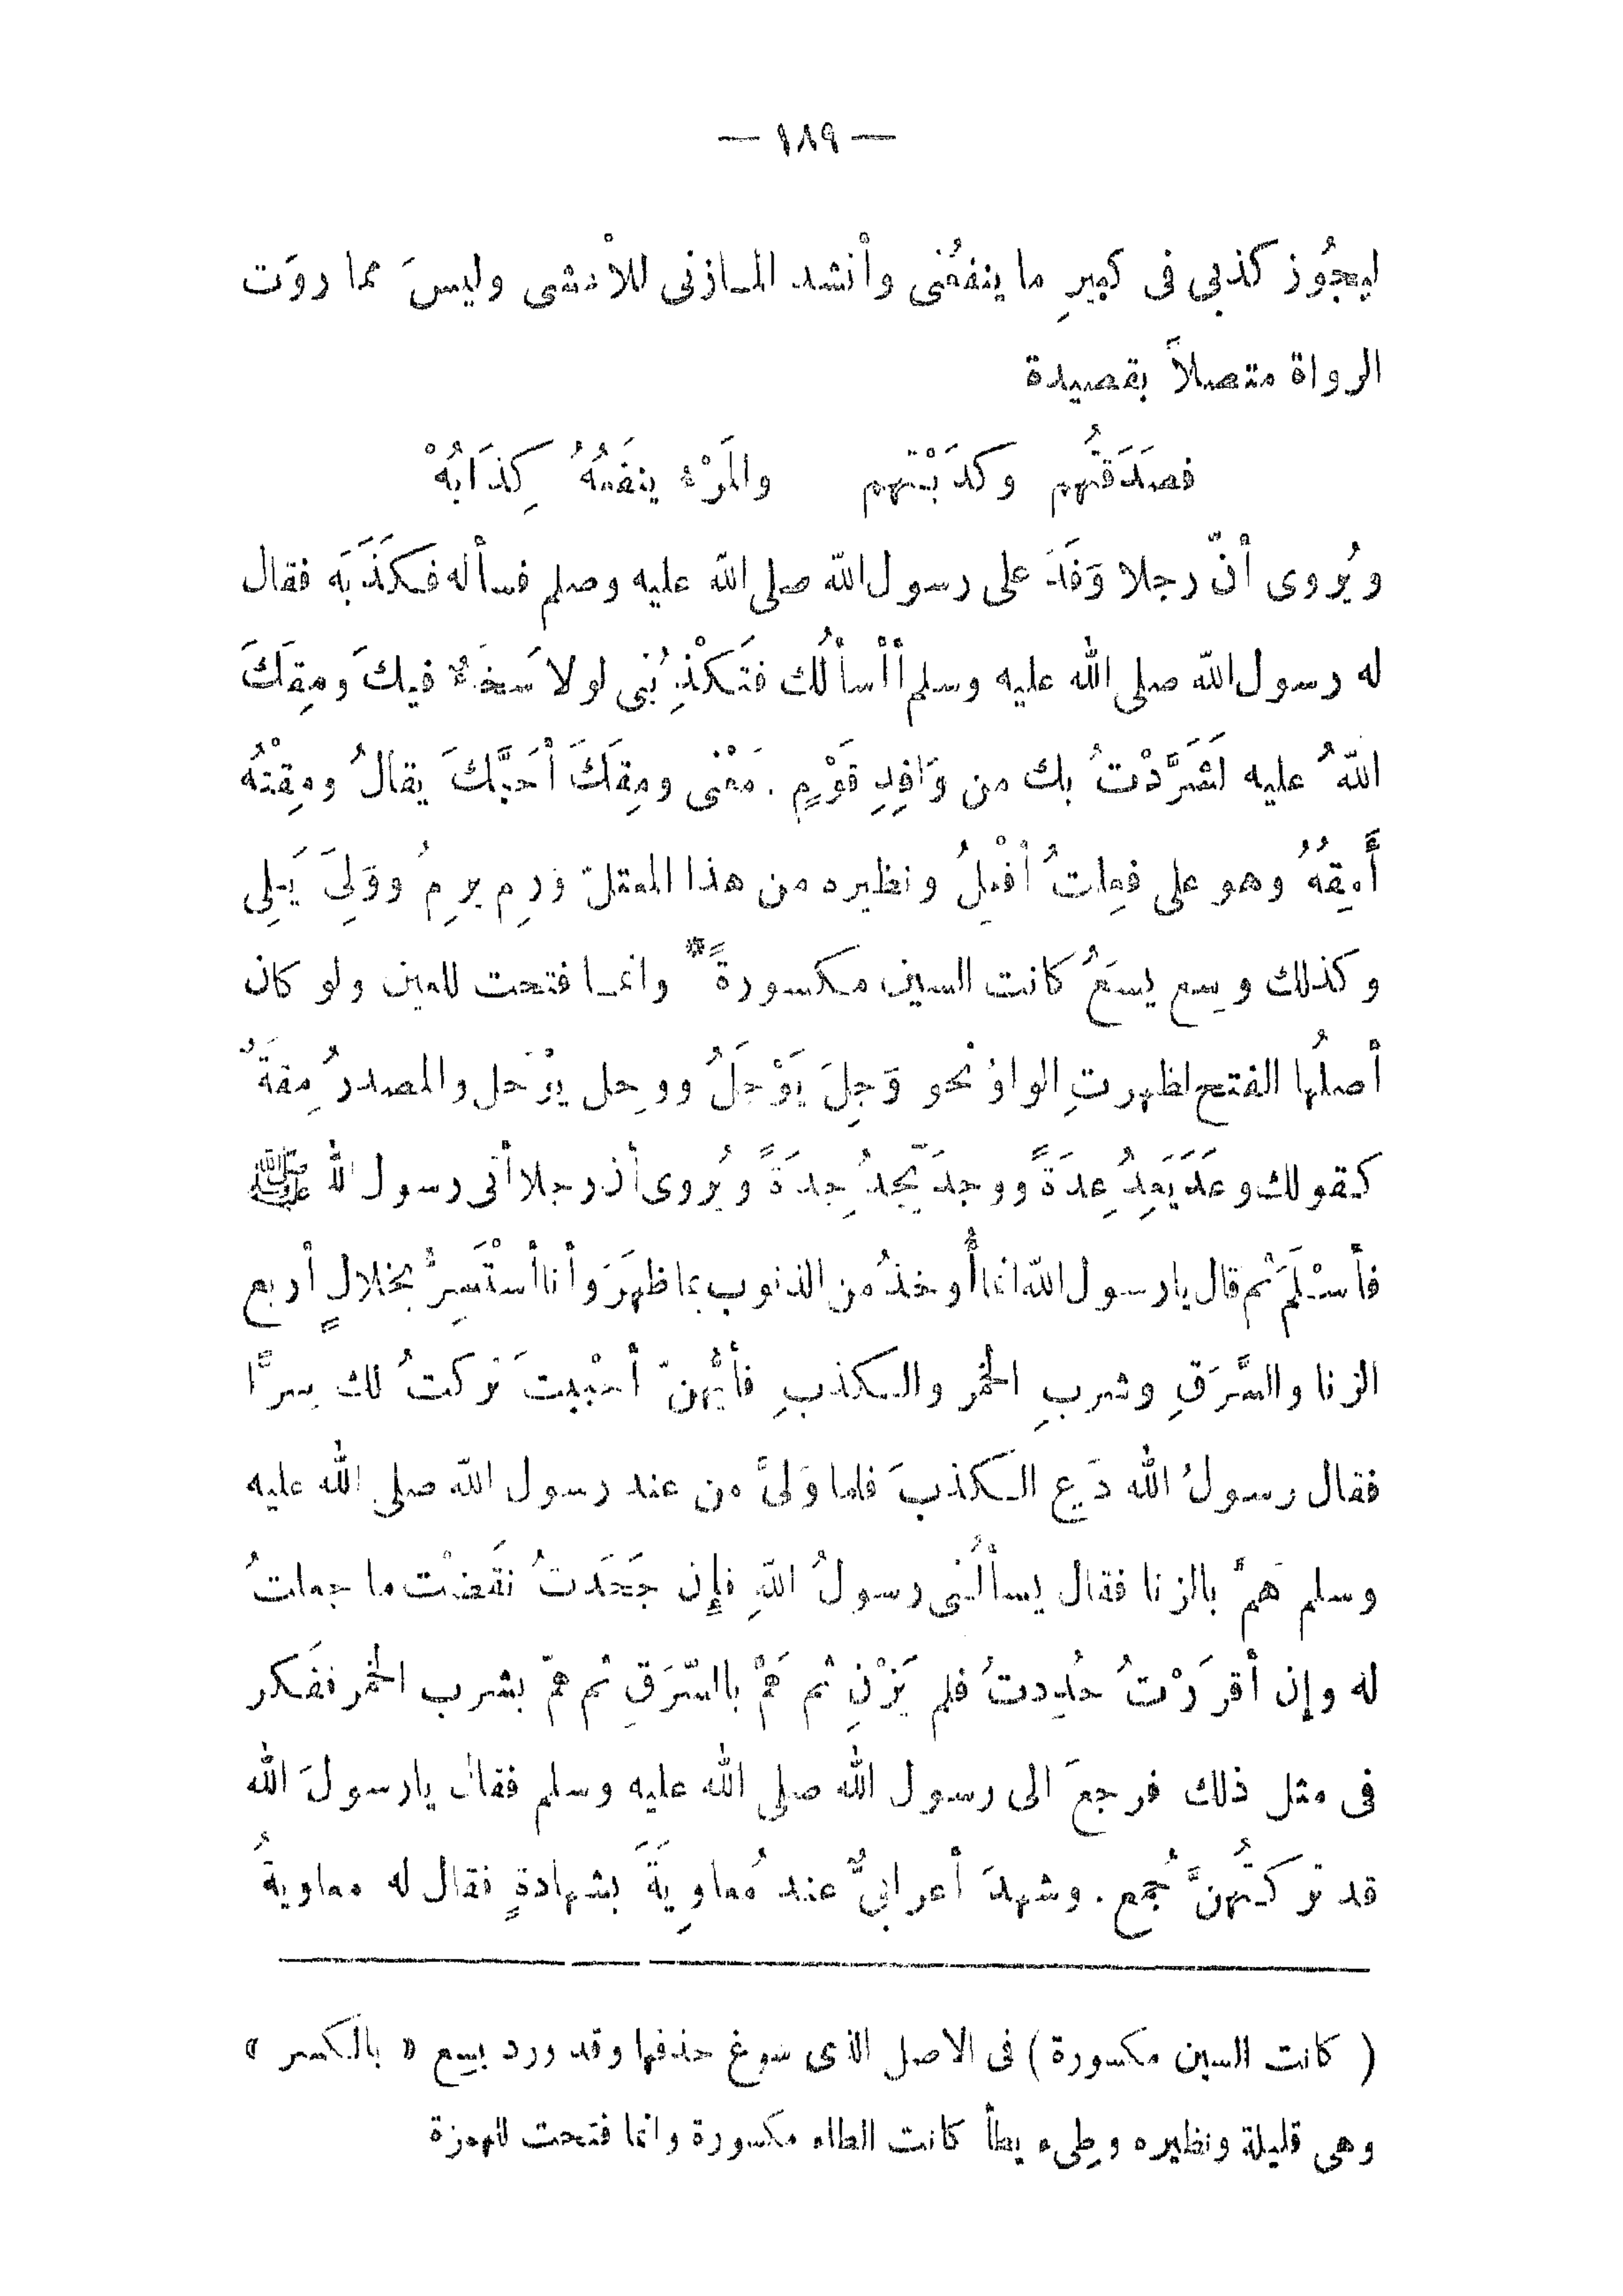 — ١٨٩ —
ليجُوز كذبي فى كبيرِ ما ينفعُنى وأنشد المازنى للأعشى وليسَ مما روَت
الرواة متصلاً بقصيدة
فصَدَقتُهم وكذَبْتهم والمَرْءُ ينفَعُهُ كِذَابُهْ
ويُروى أنّ رجلا وَفَدَ على رسول الله صلى الله عليه وصلم فسأله فكذَبَه فقال
له رسول الله صلى الله عليه وسلم أأسألُك فتَكْذِبُنى لولا سَخَاءٌ فيكَ ومِقَكَ
اللهُ عليه لشَرَّدْتُ بك من وَافِدِ قَوْمٍ . مَعْنى ومِقَكَ أحَبَّكَ يقالُ ومِقْتُه
أَمِقُهُ وهو على فعِلتُ أفْعِلُ ونظيره من هذا المعتلّ وَرِم يرِمُ ووَلِىَ يَلِى
وكذلك وسِع يسَعُ كانت السين مكسورةً * وانما فتحت للعين ولو كان
أصلُها الفتح لظهرتِ الواوُ نحو وَجِلَ يَوْجَلُ ووحِل يوْحَل والمصدرُ مِقَةٌ
كقولك وعَدَ يَعِدُ عِدَةً ووجدَ يَجِدُ جِدَةً ويُروى أن رجلا أتى رسول الله ﷺ
فأسْلَمَ ثم قال يارسول الله انما أُوخذُ من الذنوب بما ظهرَ وأنا أسْتَسِرُّ بخلالٍ أربع
الزنا والسَّرَقِ وشربِ الخمر والكذبِ فأيُّهنّ أحْببتَ تركتُ لك سرًّا
فقال رسولُ الله دَعِ الكذبَ فلما وَلىَّ من عند رسول الله صلى الله عليه
وسلم هَمَّ بالزنا فقال يسألُنى رسولُ اللهِ فإن جَحَدتُ نقَضتْ ما جعلتُ
له وإن أقرَرْتُ حُدِدتُ فلم يَزْنِ ثم هَمَّ بالسّرَقِ ثم همّ بشرب الخمر ففَكر
فى مثل ذلك فرجعَ الى رسول الله صلى الله عليه وسلم فقال يارسولَ الله
قد تركتُهنَّ جُمع . وشهدَ أعرابىٌّ عند مُعاوِيَةَ بشهادةٍ فقال له معاويةُ
( كانت السين مكسورة ) فى الاصل الذى سوغ حذفها وقد ورد يسِع « بالكسر »
وهى قليلة ونظيره وطِىء يطأ كانت الطاء مكسورة وانما فتحت للهمزة